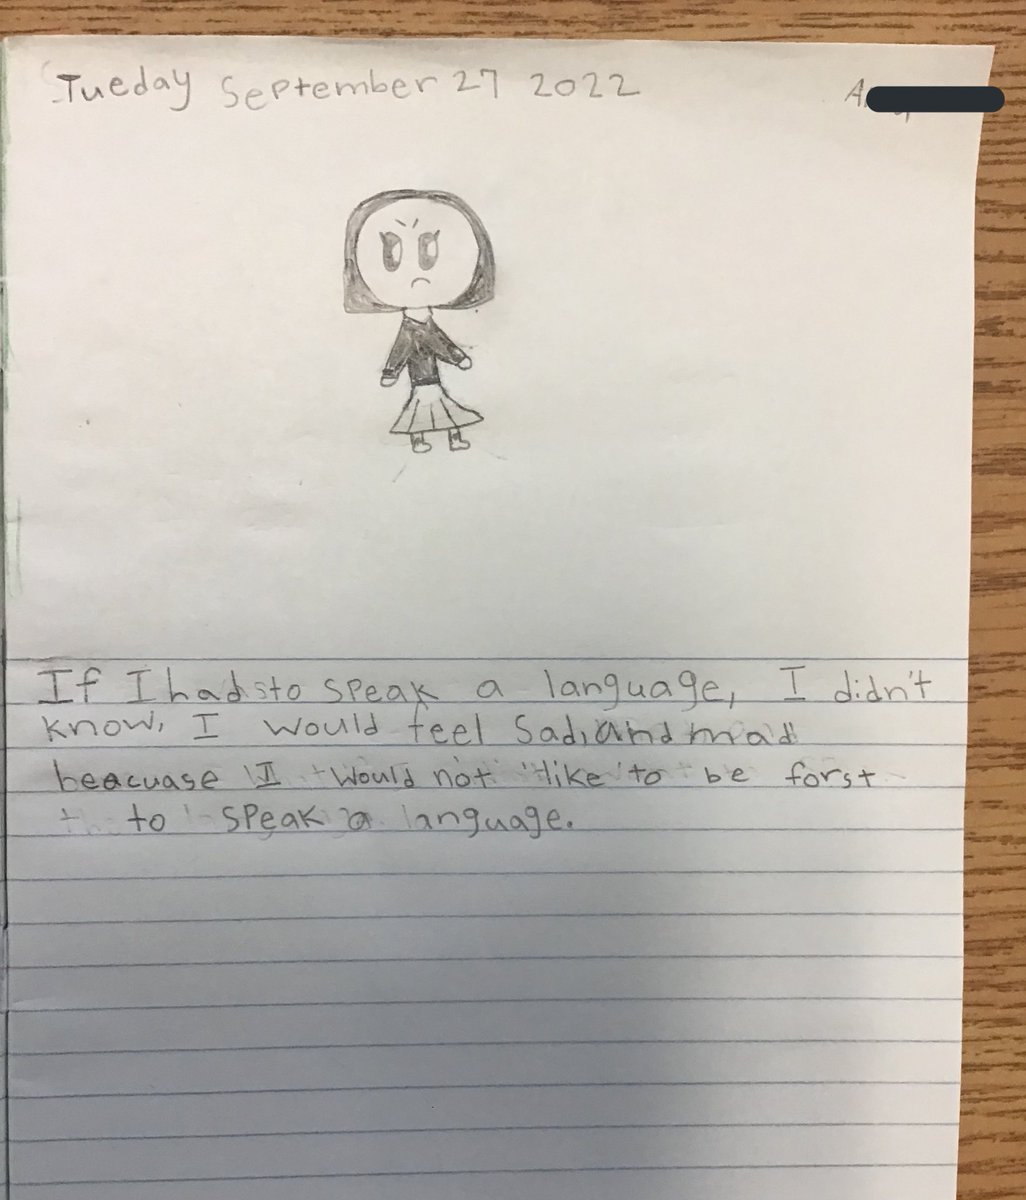 Tueday September 27 2022
If I had to speak a language, I didn't
know, I would feel sad, and mad
beacuase I would not like to be forst
to speak a language.